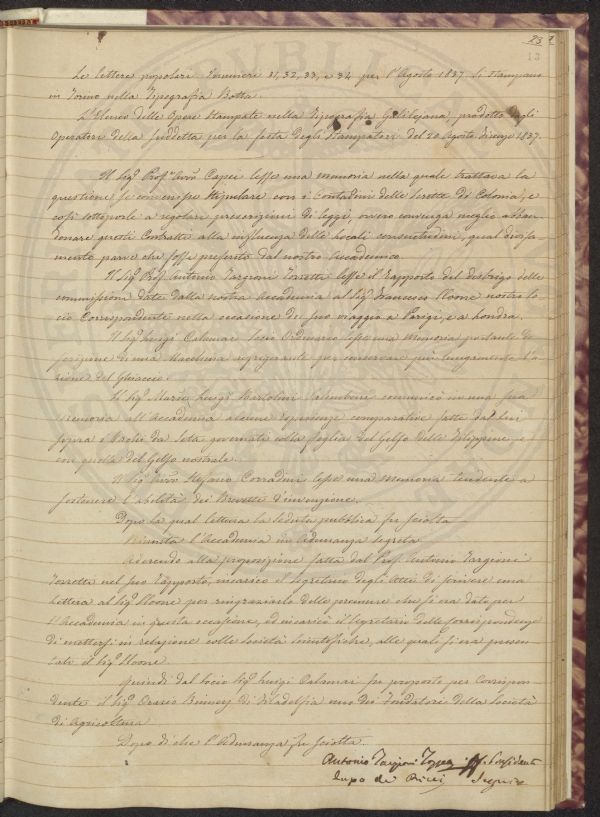 23
13
Le lettere popolari Numeri 31, 32, 33, e 34 per l'Agosto 1837. Si stampano
in Torino nella Tipografia Botta.
L'Elenco delle Opere Stampate nella Tipografia Galilejana, prodotto dagli
Operatori della suddetta per la festa degli Stampatori del 20 Agosto Firenze 1837.
Il Sigr. Prof. Avvo. Capei lesse una memoria nella quale trattava la
questione se convenisse stipulare con i Contadini delle Scritte di Colonia, e
così sottoporle a regolari prescrizioni di leggi, ovvero convenga meglio abban
donare questi Contratti alla influenza delle locali consuetudini, qual divisa
mento parve che fosse preferito dal nostro Accademico.
Il Sigr. Prof. Antonio Targioni Tozzetti lesse il rapporto del disbrigo delle
commissioni date dalla nostra Accademia al Sigr. Francesco Sloane nostro So
cio Corrispondente nella occasione del suo viaggio a Parigi, e a Londra.
Il Sigr. Luigi Calamai Socio Ordinario lesse una Memoria portante de
scrizione di una Macchina refrigerante per conservare più lungamente l'a
zione del Ghiaccio.
Il Sigr. Mario Luigi Bartolini Salimbeni comunicò in una sua
memoria all'Accademia alcune esperienze comparative fatte da lui
sopra i Bachi da Seta governati colla foglia del Gelso delle Filippine, e
con quella del Gelso nostrale.
Il Sigr. Avvo. Stefano Corradini lesse una memoria tendente a
sostenere l'abilità dei Brevetti d'invenzione.
Dopo la qual lettura la seduta pubblica fu sciolta
Riunita l'Accademia in adunanza segreta
Aderendo alla proposizione fatta dal Prof. Antonio Targioni
Tozzetti nel suo rapporto, incaricò il Segretario degli Atti di scrivere una
lettera al Sigr. Sloane per ringraziarlo delle premure che si era dato per
l'Accademia in questa occasione, ed incaricò il Segretario delle Corrispondenze
di mettersi in relazione colle Società Scientifiche, alle quali si era presen
tato il Sigr. Sloane.
Quindi dal Socio Sigr. Luigi Calamai fu proposto per Corrispon
dente il Sigr. Orazio Binney di Filadelfia uno dei Fondatori della Società
di Agricoltura
Dopo di che l'Adunanza fu sciolta.
Antonio Targioni Tozzetti Presidente
Lapo de' Ricci Segrio